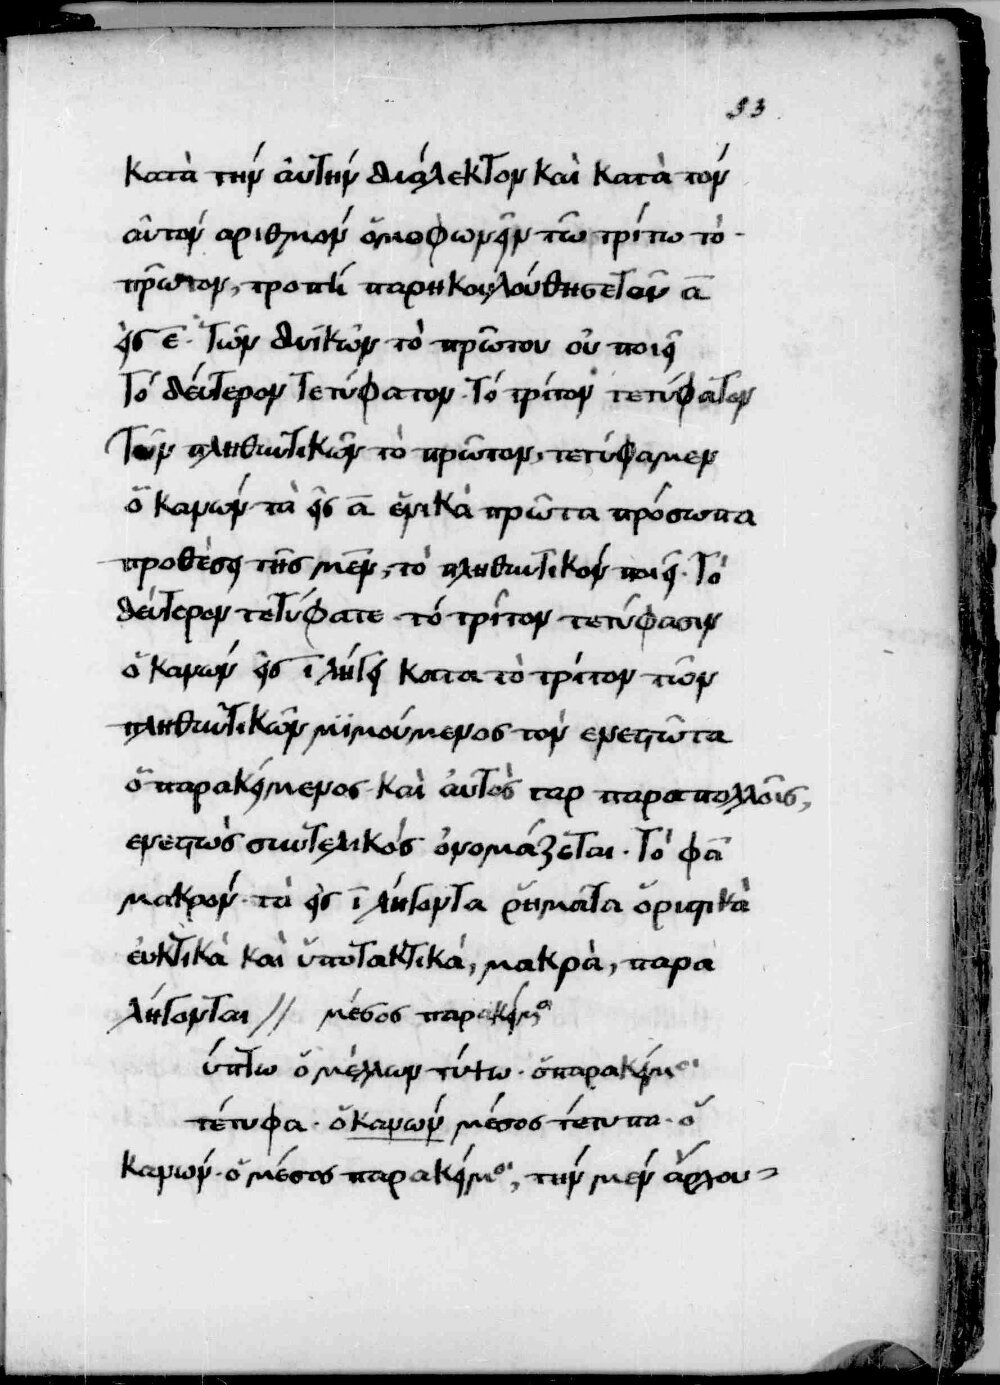 93
κατὰ τὴν ἀυτὴν διάλεκτον καὶ κατὰ τὸν
ἀυτὸν αριθμὸν ὁμοφωνεῖν τῶ τρίτω τὸ
πρῶτον, τροπὴ παρηκουλούθησε τῶν ᾱ
εἰς ε̄· Τῶν δυϊκῶν τὸ πρῶτον οὐ ποιεῖ
Τὸ δέυτερον τετύφατον· Τό τρίτον τετύφατον
Τῶν πληθυντικῶν τὸ πρῶτον, τετύφαμεν
ὁ κανών· τὰ εἰς ᾱ ἑνικὰ πρῶτα πρόσωπα
προθέσει τῆς μεν, τὸ πληθυντικὸν ποιεῖ· Τὸ
δέυτερον τετύφατε· τό τρίτον τετύφασιν
ὁ κανών εἰς ῑ λήγει κατα τὸ τρίτον τῶν
πληθυντικῶν μιμούμενος τὸν ενεστῶτα
ὁ παρακείμενος· καὶ ἀυτὸς γαρ παρα πολλοῖς,
ενεστὼς συντελικός ὀνομάζεται· Τὸ φᾱ
μακρόν· τὰ εἰς ῑ λήγοντα ῥήματα ὁριστικὰ
ἐυκτικὰ καὶ ὑποτακτικά, μακρὰ, παρα
λήγονται // μέσος παρακείμ
ύπτω ὁ μέλλων τύψω· ὁ παρακείμ
τέτυφα· ὁ κανών μέσος τέτυπα· ὁ
κανών· ὁ μέσος παρακείμ, τὴν μὲν ἄρχου